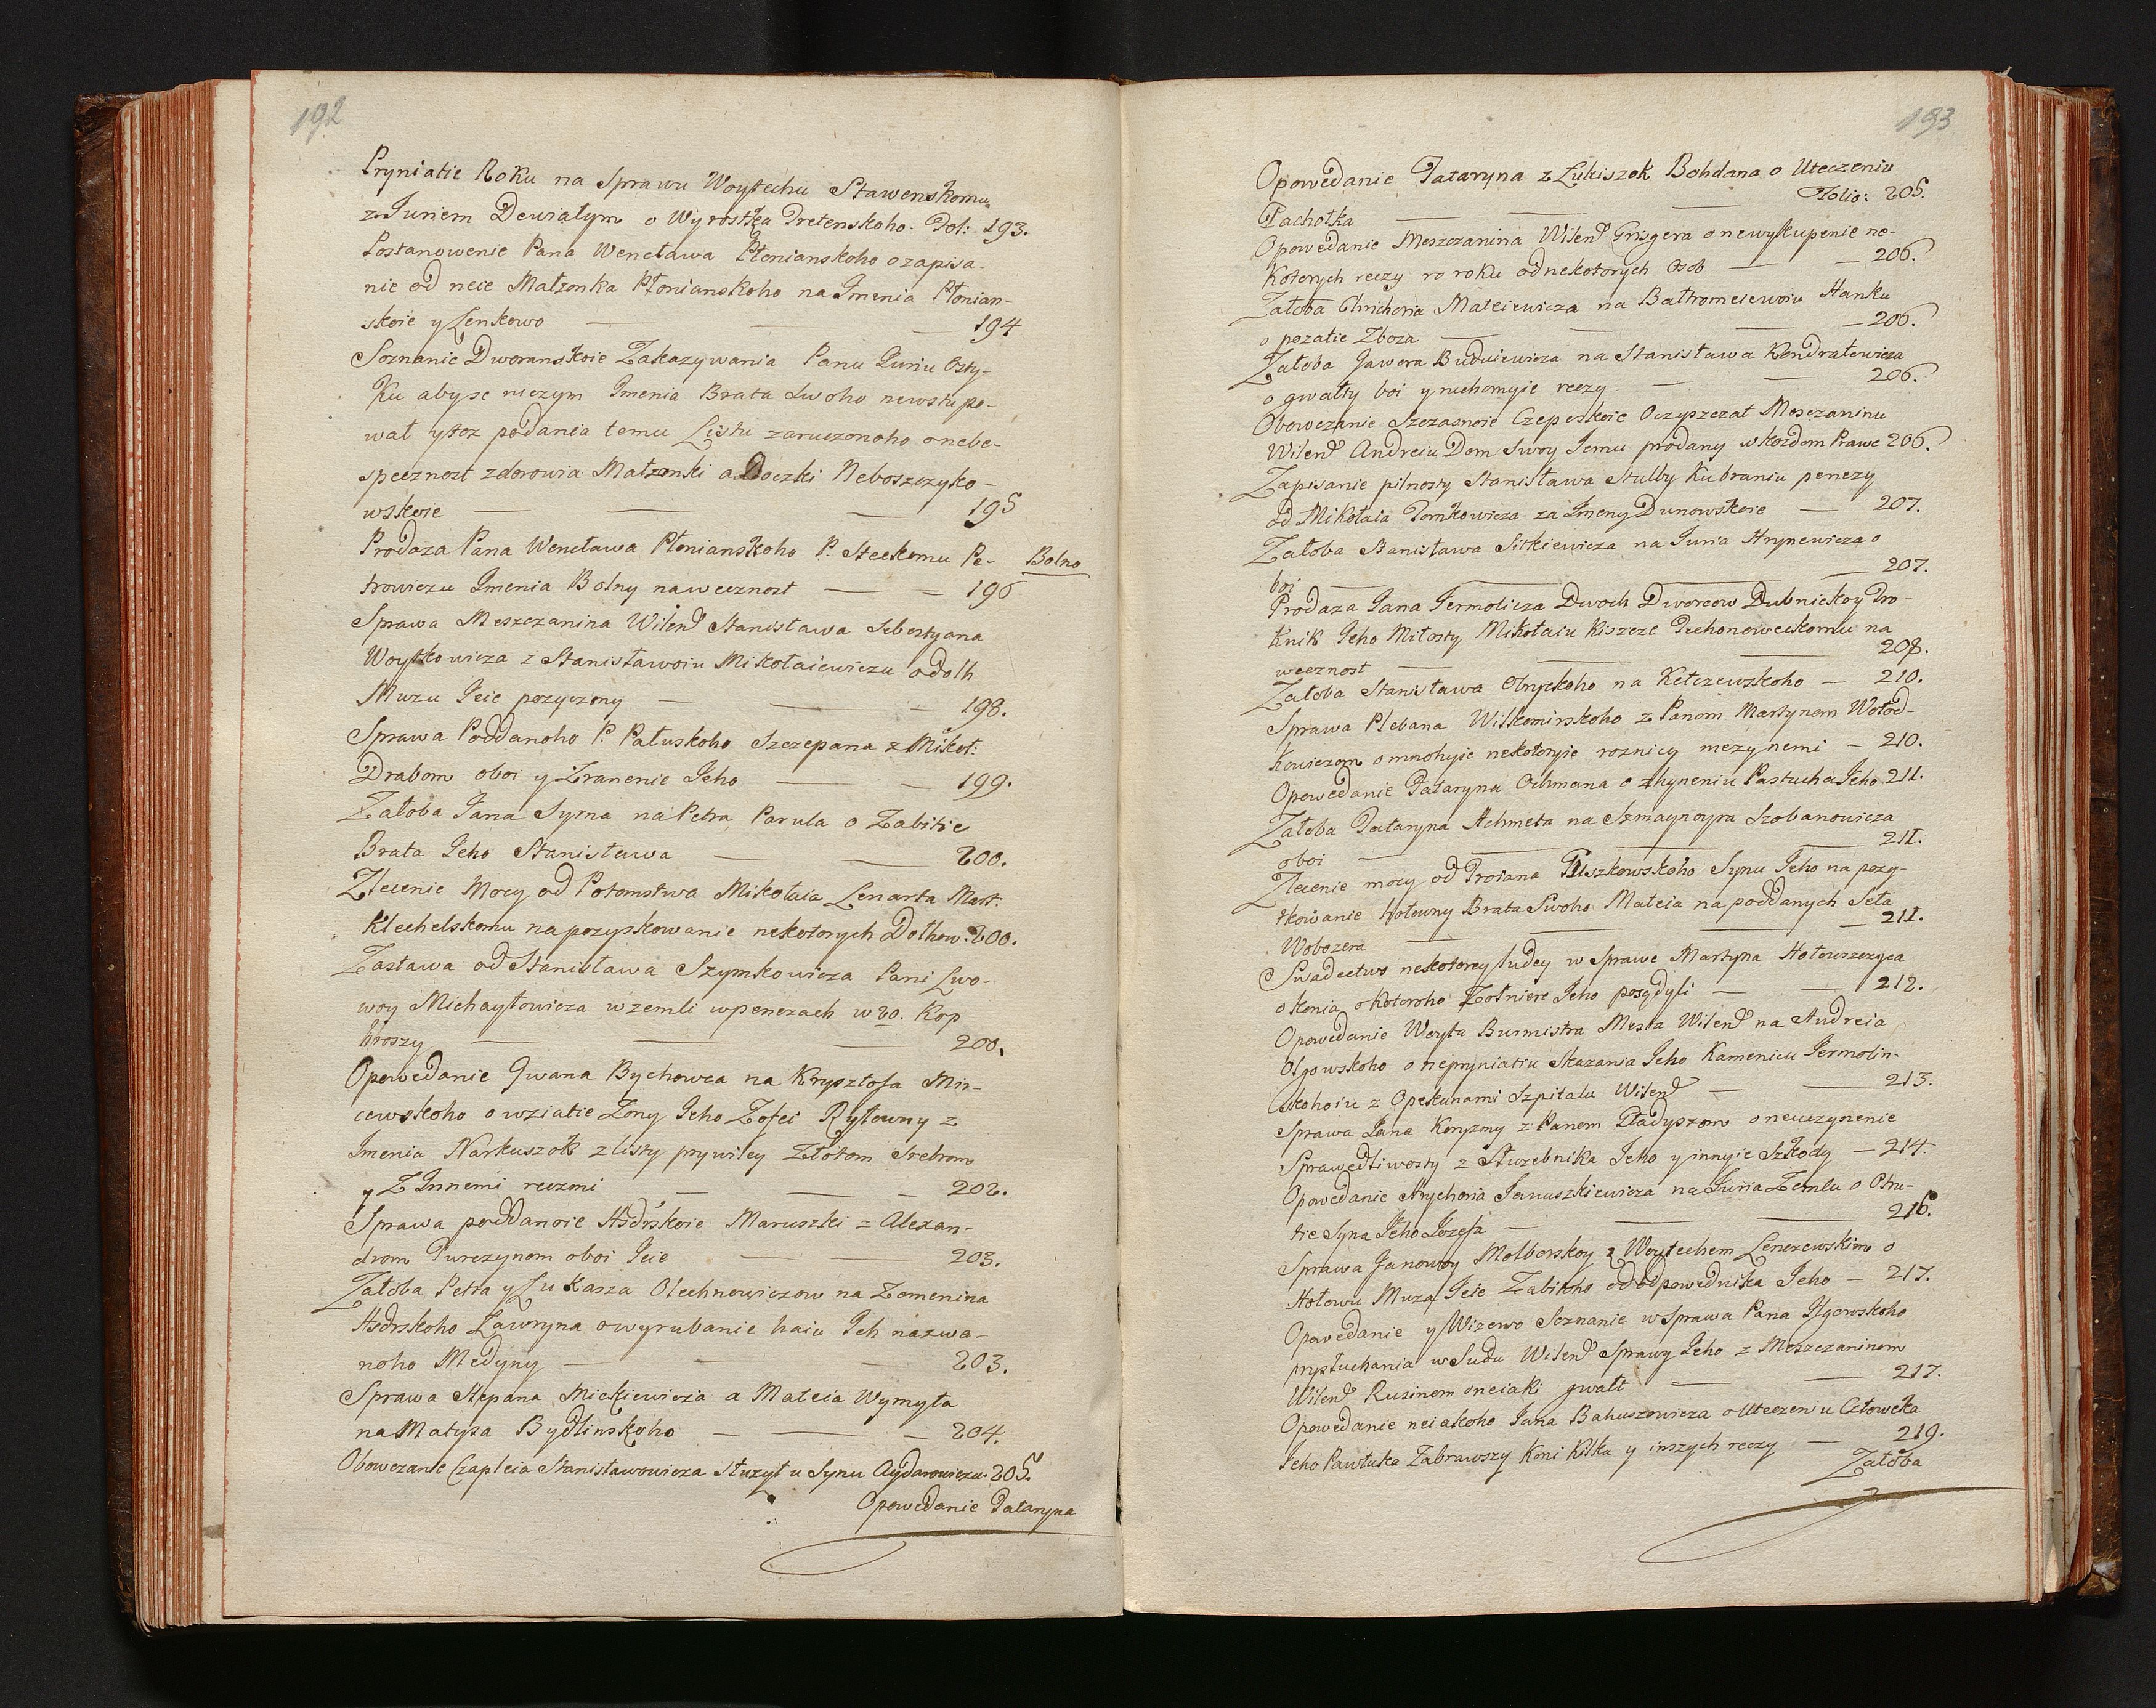 192
Pryniatie Roku na Sprawu Woytechu Stawenskomu
z Juriem Dewiatym o Wyrostka Tretenskoho. Fol: 193.
Postanowenie Pana Wencława Płonianskoho o zapisa-
nie od neie Małzonka Płonianskoho na Jmenia Płonian-
skoie y Lenkowo 194
Soznanie Dworanskoie Zakazywania Panu Juriu Osty-
Ku aby se niczym Jmenia Brata Swoho newstupo-
wał y toz podania temu Listu zaruczonoho o nebe-
specznost zdorowia Małzonki a Doczki Neboszczyko-
wskoie 195
Prodaza Pana Wencława Płonianskoho P. Steckomu Pe-
Bolno
trowiczu Jmenia Bolny na wecznost 196
Sprawa Meszczanina Wilend Stanisława Sebestyana
Woytkowicza z Stanisławoiu Mikołaiewiczu o dolh
Muzu Jeie pozyczony 198.
Sprawa Poddanoho P. Pałuskoho Szczepana z Mikoł:
Drabom o boi y Zranenie Jeho 199.
Załoba Jana Syma na Petra Parula o Zabitie
Brata Jeho Stanisława 200.
Zlecenie Mocy od Potomstwa Mikołaia Lenarta Mart:
Klechelskomu na pozyskowanie nekotorych Dołhow. 200.
Zastawa od Stanisława Szymkowicza Pani Lwo-
woy Michayłowicza w zemli w penezach w 20. Kop
hroszy 200.
Opowedanie Jwana Bychowca na Krysztofa Mir-
cewskoho o wziatie Zony Jeho Zofei Ryłowny z
Jmenia Narkuszok z listy prywiley Złotom Srebrom
y Z Jnnemi reczmi 202.
Sprawa poddanoie Hsdrskoie Maruszki z Alexan-
drom Turczynom o boi Jeie 203.
Załoba Petra y Lukasza Olechnowiczow na Zemenina
Hsdrskoho Ławryna o wyrubanie haiu Jch nazwa-
noho Medyny 203.
Sprawa Stepana Mickiewicza a Mateia Wymyta
na Matysa Bydlinskoho 204.
Obowezanie Czapleia Stanisławowicza słuzyt u Synu Aydarowiczu. 205.
Opowedanie Tataryna
193
Opowedanie Tataryna z Łukiszok Bohdana o Uteczeniu
Pachołka Folio: 205.
Opowedanie Meszczanina Wilend Grygera o newykupenie ne-
kotorych reczy ro roku od nekotorych Osob 206.
Załoba Chrichoria Mateiewicza na Bałtromeiewoiu Hanku
o pozatie Zboza 206.
Załoba Jawora Budwiewicza na Stanisława Kondratowicza
o gwałty boi y ruchomyie reczy 206.
Obowezanie Szczasnoie Czepeskoie Oczyszczat Mesczaninu
Wilend Andreiu Dom Swoy Jemu prodany w kozdom Prawe 206.
Zapisanie pilnosty Stanisława Stulby Ku braniu penezy
od Mikołaia Tomkowicza za Jmeny Dunowskoie 207.
Załoba Stanisława Sitkiewicza na Juria Hrynewicza o
boi 207.
Prodaza Jana Jermolicza Dwoch Dworcow Dubnickoy Tro-
knik Jeho Miłosty Mikołaiu Kiszcze Techonoweckomu na
wecznost 208.
Załoba Stanisława Obryckoho na Kełczewskoho 210.
Sprawa Plebana Wilkomirskoho z Panom Martynom Wołod-
kowiczom o mnohyie nekotoryie roznicy mezy nemi 210.
Opowedanie Tataryna Ochmana o zhyneniu Pastucha Jeho 211.
Załoba Tataryna Achmeta na Szmaynoyra Szobanowicza
o boi 211.
Zlecenie mocy od Troiana Puszkowskoho Synu Jeho na pozy-
skowanie hołowny Brata Swoho Mateia na poddanych Seła
Wobozera 211.
Swadectwo nekotorey ludey w Sprawe Martyna Hołowszczyca
o konia o kotoroho Zołniere Jeho posądyli 212.
Opowedanie Woyta Burmistra Mesta Wilend na Andreia
Olgowskoho o nepryniatiu Skazania Jeho Kamenicu Jermolin-
skohoiu z Opekunami Szpitalu Wilend 213.
Sprawa Jana Koryzny z Panem Gładyszom o neuczynenie
Sprawedliwosty z Słuzebnika Jeho y innyie Szkody 214.
Opowedanie Hrychoria Januszkiewicza na Juria Zemlu o Otru-
tie Syna Jeho Jozefa 216.
Sprawa Janowoy Motborskoy z Woytechem Lenczewskim o
Hołowu Muza Jeie Zabitoho od odpowednika Jeho 217.
Opowedanie y Wizowo Soznanie w Sprawa Pana Jlgowskoho
prysłuchania w Sudu Wilend Sprawy Jeho z Meszczaninom
Wilend Rusinom o neiaki gwałt 217.
Opowedanie neiakoho Jana Bahuszowicza o Uteczeniu Człoweka
Jeho Pawłuka Zabrawszy Koni Kilka y inszych reczy 219.
Załoba